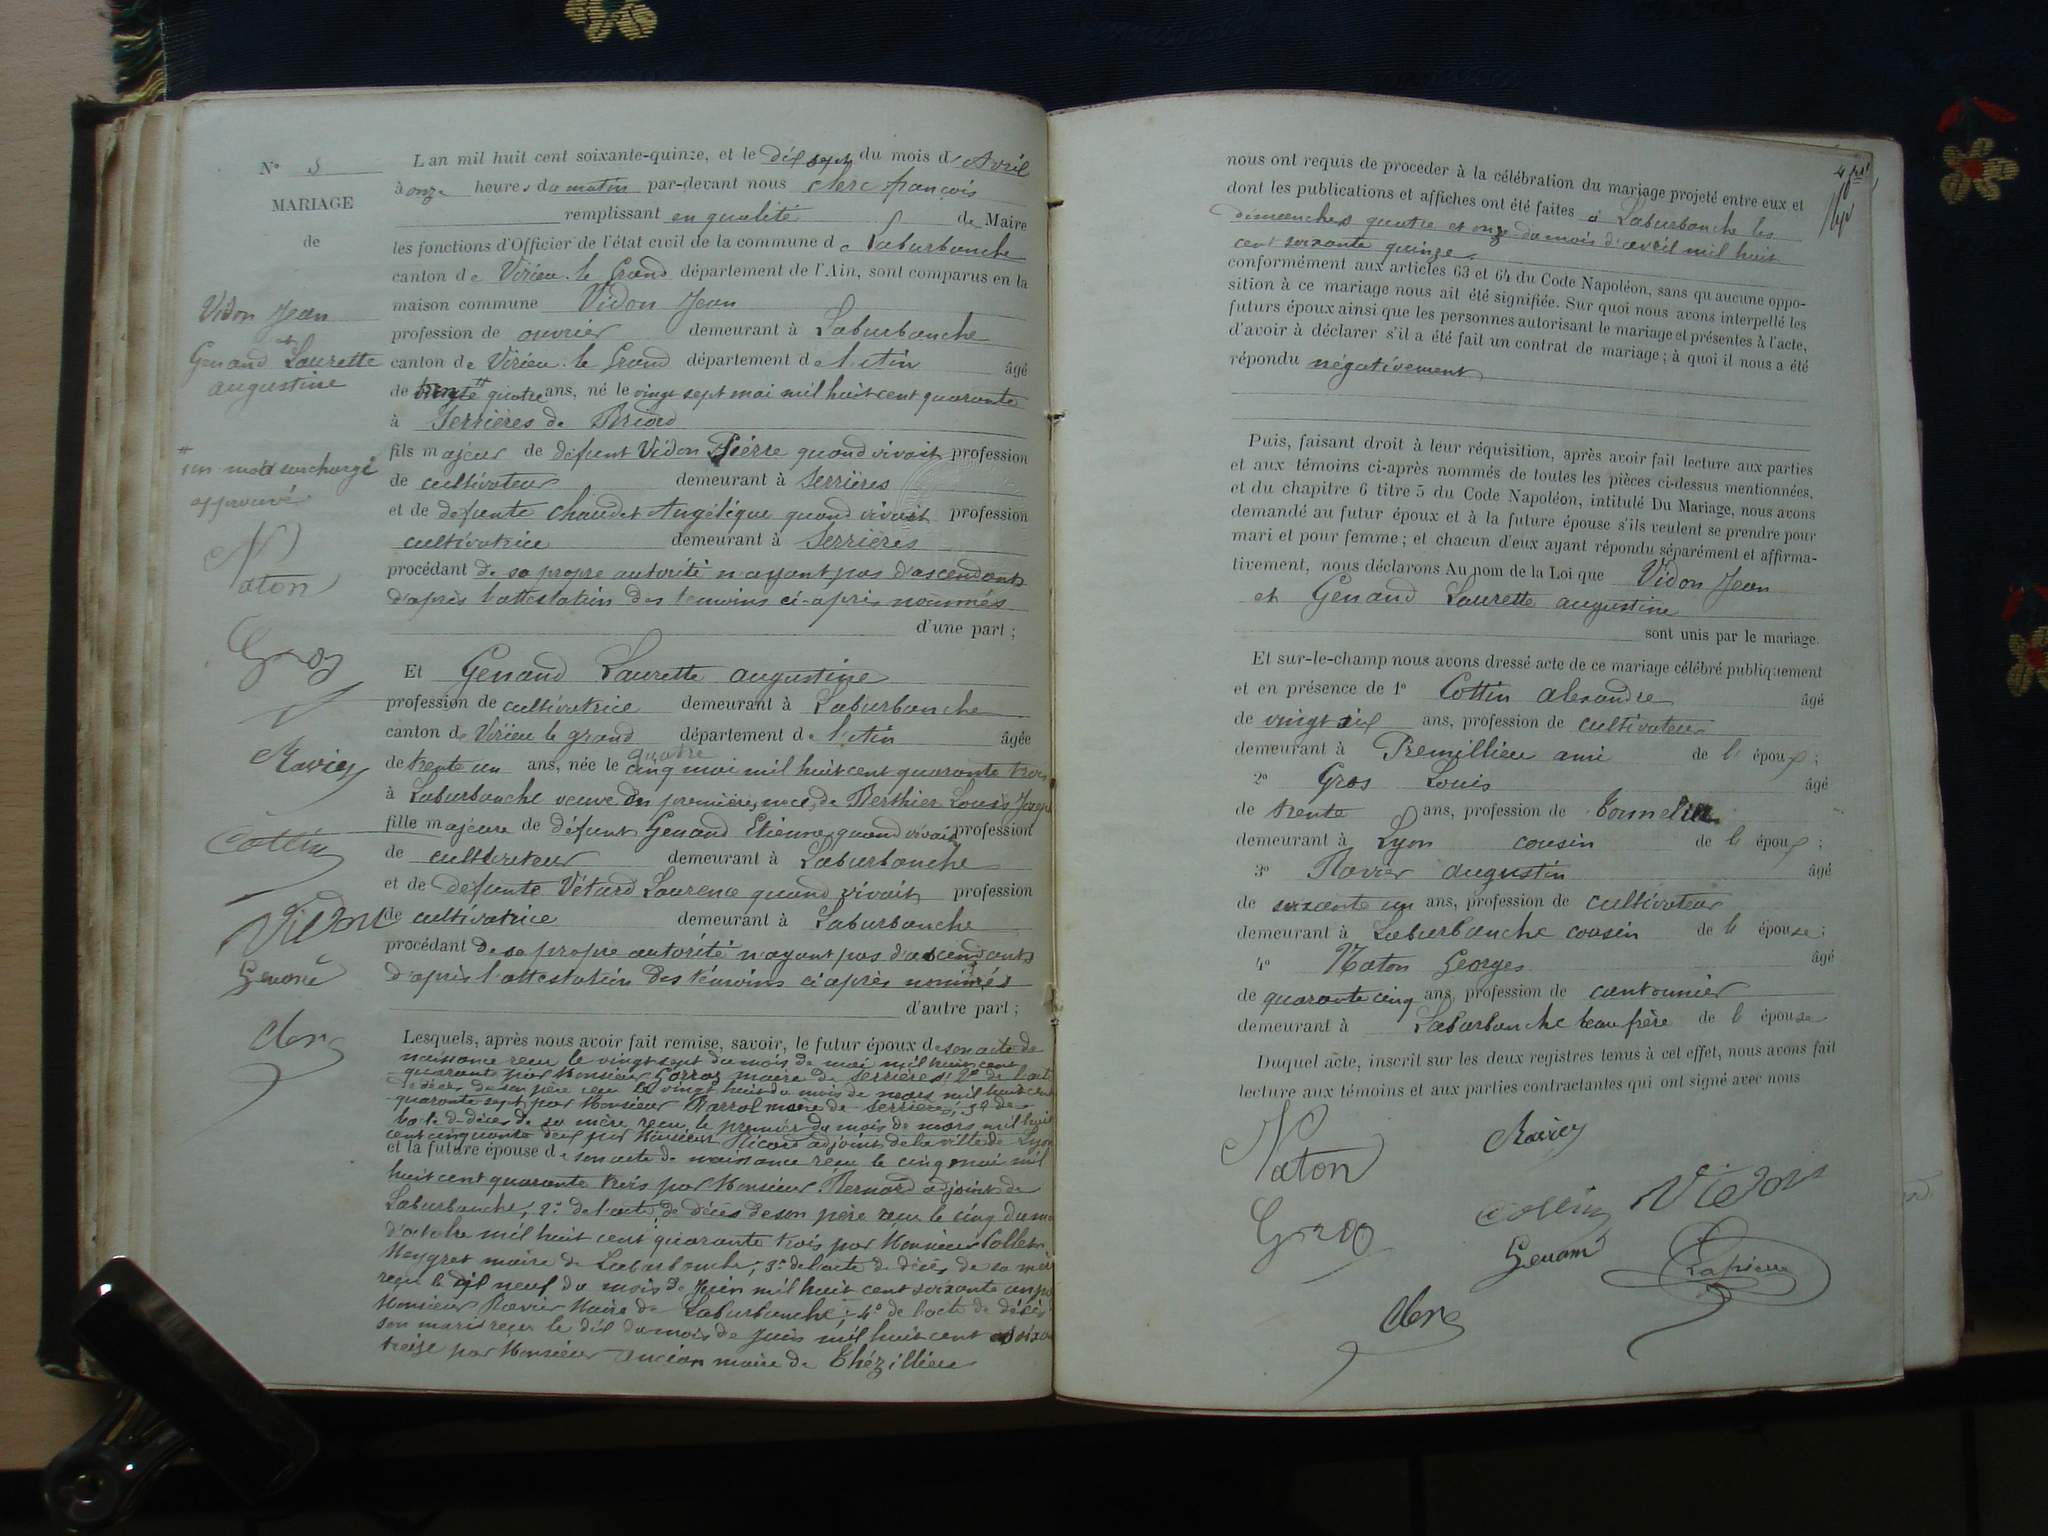 N° 5
MARIAGE
de
Vidon Jean
et
Genand Laurette
augustine
un mot surchargé
approuvé
Naton
Gros
Ravier
Cottin
Vidon
Genand
Clerc
L'an mil huit cent soixante-quinze, et le dix sept du mois d'Avril
à onze heures du matin par-devant nous Clerc françois
remplissant en qualité de Maire
les fonctions d'Officier de l'état civil de la commune de Laburbanche
canton de Virieu-le Grand département de l'Ain, sont comparus en la
maison commune Vidon Jean
profession de ouvrier demeurant à Laburbanche
canton de Virieu-le Grand département de l'Ain âgé
de trente quatre ans, né le vingt sept mai mil huit cent quarante
à Serrières de Briord
fils majeur de défunt Vidon Pierre quand vivait profession
de cultivateur demeurant à Serrières
et de défunte Chaudet Angélique quand vivait profession
cultivatrice demeurant à Serrières
procédant de sa propre autorité n'ayant pas d'ascendants
d'après l'attestation des témoins ci-après nommés
d'une part ;
Et Genand Laurette augustine
profession de cultivatrice demeurant à Laburbanche
canton de Virieu le grand département de l'Ain âgée
quatre
de trente un ans, née le cinq mai mil huit cent quarante trois
à Laburbanche veuve en premières noces de Berthier Louis Joseph
fille majeure de défunt Genand Etienne quand vivait profession
de cultivateur demeurant à Laburbanche
et de défunte Vétard Laurence quand vivait profession
de cultivatrice demeurant à Laburbanche
procédant de sa propre autorité n'ayant pas d'ascendants
d'après l'attestation des témoins ci après nommés
d'autre part ;
Lesquels, après nous avoir fait remise, savoir, le futur époux de son acte de
naissance reçu le vingt sept du mois de mai mil huit cent
quarante par Monsieur maire de Serrières; 2° de l'acte
de décès de son père reçu le vingt huit du mois de mars mil huit cent
quarante sept par Monsieur Barral maire de Serrières; 3° de
l'acte de décès de sa mère reçu le premier du mois de mars mil huit
cent cinquante deux par Monsieur Picard adjoint de la ville de Lyon
et la future épouse de son acte de naissance reçu le cinq mai mil
huit cent quarante trois par Monsieur Bernard adjoint de
Laburbanche, 2° de l'acte de décès de son père reçu le cinq du mois
d'octobre mil huit cent quarante trois par Monsieur Collet
Meygret maire de Laburbanche; 3° de l'acte de décès de sa mère
reçu le dix neuf du mois de Juin mil huit cent soixante un par
Monsieur Ravier Maire de Laburbanche; 4° de l'acte de décès
son mari reçu le dix du mois de Juin mil huit cent soixante
treize par Monsieur maire de Thézillieu
nous ont requis de procéder à la célébration du mariage projeté entre eux et
dont les publications et affiches ont été faites à Laburbanche les
dimanches quatre et onze du mois d'avril mil huit
cent soixante quinze
conformément aux articles 63 et 64 du Code Napoléon, sans qu'aucune oppo-
sition à ce mariage nous ait été signifiée. Sur quoi nous avons interpellé les
futurs époux ainsi que les personnes autorisant le mariage et présentes à l'acte,
d'avoir à déclarer s'il a été fait un contrat de mariage ; à quoi il nous a été
répondu négativement
Puis, faisant droit à leur réquisition, après avoir fait lecture aux parties
et aux témoins ci-après nommés de toutes les pièces ci-dessus mentionnées,
et du chapitre 6 titre 5 du Code Napoléon, intitulé Du Mariage, nous avons
demandé au futur époux et à la future épouse s'ils veulent se prendre pour
mari et pour femme ; et chacun d'eux ayant répondu séparément et affirma-
tivement, nous déclarons Au nom de la Loi que Vidon Jean
et Genand Laurette augustine
sont unis par le mariage.
Et sur-le-champ nous avons dressé acte de ce mariage célébré publiquement
et en présence de 1° Cottin alexandre âgé
de vingt six ans, profession de cultivateur
demeurant à Prémillieu ami de l'époux ;
2° Gros Louis âgé
de trente ans, profession de tonnelier
demeurant à Lyon cousin de l'époux ;
3° Ravier augustin âgé
de soixante un ans, profession de cultivateur
demeurant à Laburbanche cousin de l'épouse ;
4° Naton Georges âgé
de quarante cinq ans, profession de cantonnier
demeurant à Laburbanche beau frère de l'épouse
Duquel acte, inscrit sur les deux registres tenus à cet effet, nous avons fait
lecture aux témoins et aux parties contractantes qui ont signé avec nous
Naton Ravier
Gros Cottin Vidon
Genand Lapierre
Clerc